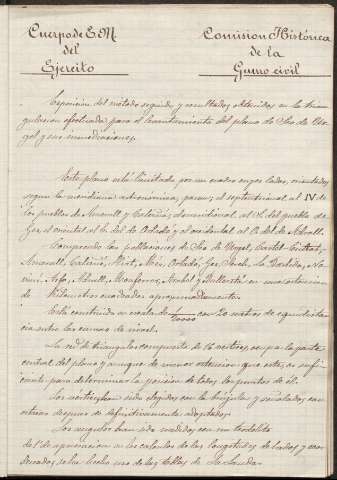 Cuerpo de E.M. 
del
Ejército
Comision Histórica
de la
Guerra civil
Exposicion del metodo seguido y resultados obtenidos en la trian-
gulacion efectuada para el levantamiento del plano de Seo de Ur-
gel y sus inmediaciones.
Este plano está limitado por un cuadro cuyos lados, orientados
segun la meridiana astronomica, pasan; el septentrional al N. de
los pueblos de Anserall y Calviñá; el meridional al S. del pueblo de
Ges, el oriental al E. del de Ortedó y el occidental al O. del de Adrall.
Comprende las poblaciones de Seo de Urgel, Castel-Ciutat,
Anserall, Calviñá, Alás, Ortedó, la Bastida, Na-
vinés, Adrall, Monferrer, Arabell y Ballestá en una estension
de kilómetros cuadrados aproximadamente.
Está construido en escala de 1/10000 con 20 metros de equidistan-
cia entre las curvas de nivel.
La red de triangulos compuesta de vertices, ocupa la parte
central del plano y aunque de menor estension que este, es sufi-
ciente para determinar la posicion de todos los puntos de él.
Los vértices han sido elegidos con la brújula y señalados con
despues de definitivamente adoptados.
Los angulos han sido medidos con un teodolito
de 1' de aproximacion en los calculos de las longitudes de lados y coor-
denadas, se ha hecho uso de las tablas de Lalande.